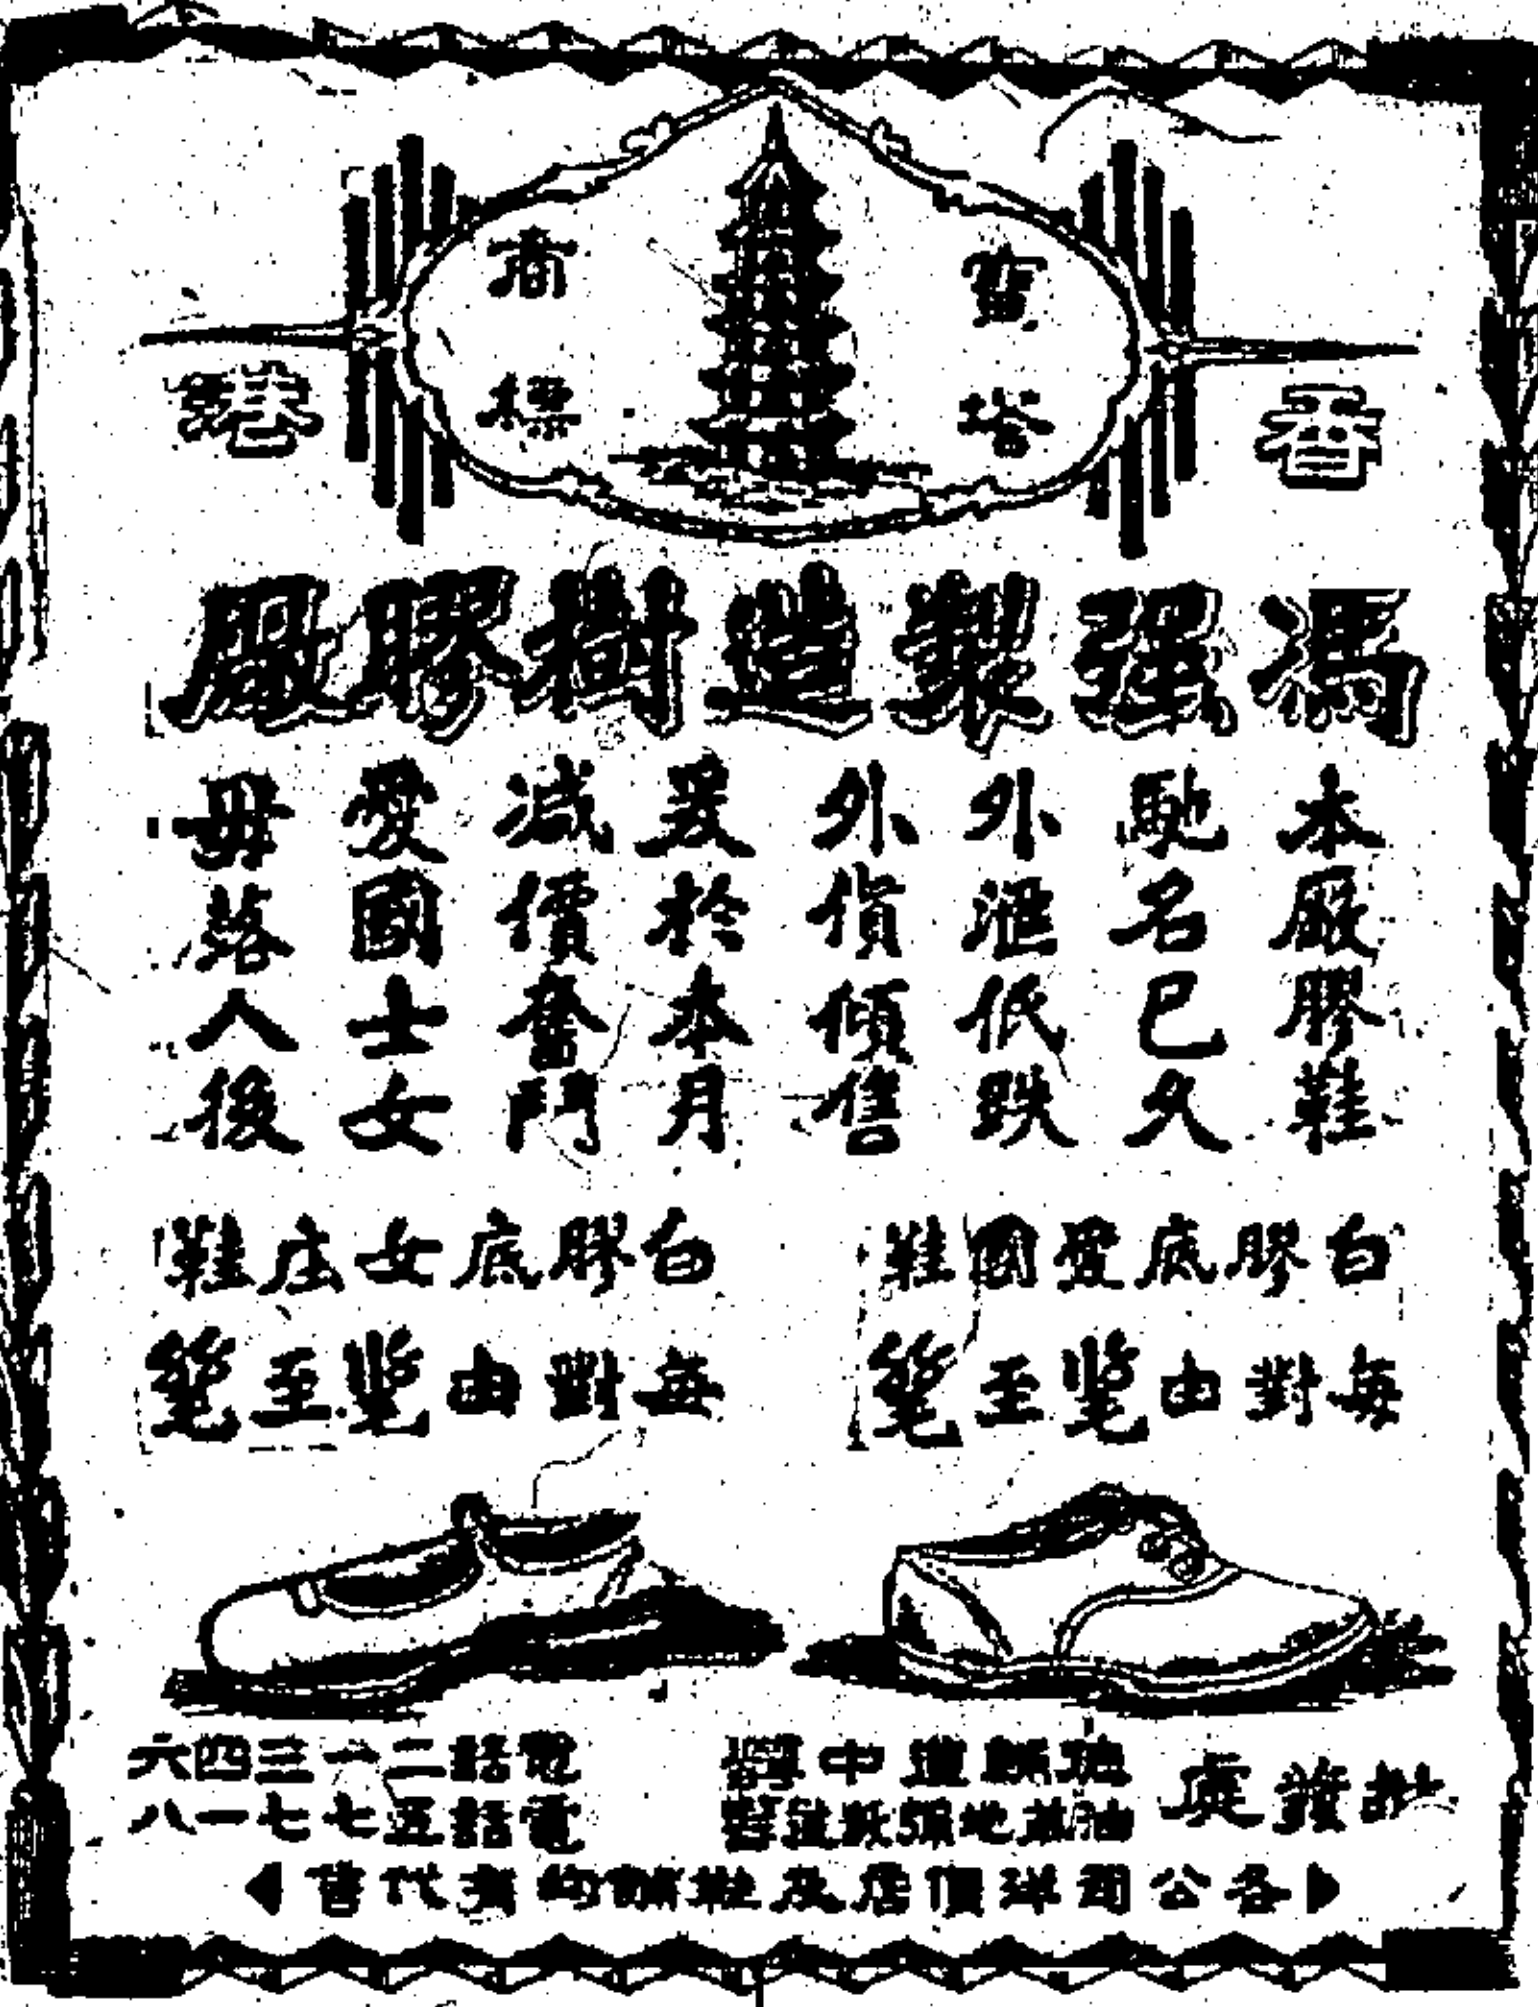 香港
寶塔
商標
馮强製造樹膠廠
本廠膠鞋
馳名已久
外滙低跌
外貨傾售
爰於本月
减價奮鬥
愛國士女
毋落人後
白膠底愛國鞋
每對由毫至毫
白膠底女庄鞋
每對由毫至毫
批發處
道中
油蔴地彌敦道
電話二一三四六
電話五七七一八
各公司洋貨店及鞋舖均有代售